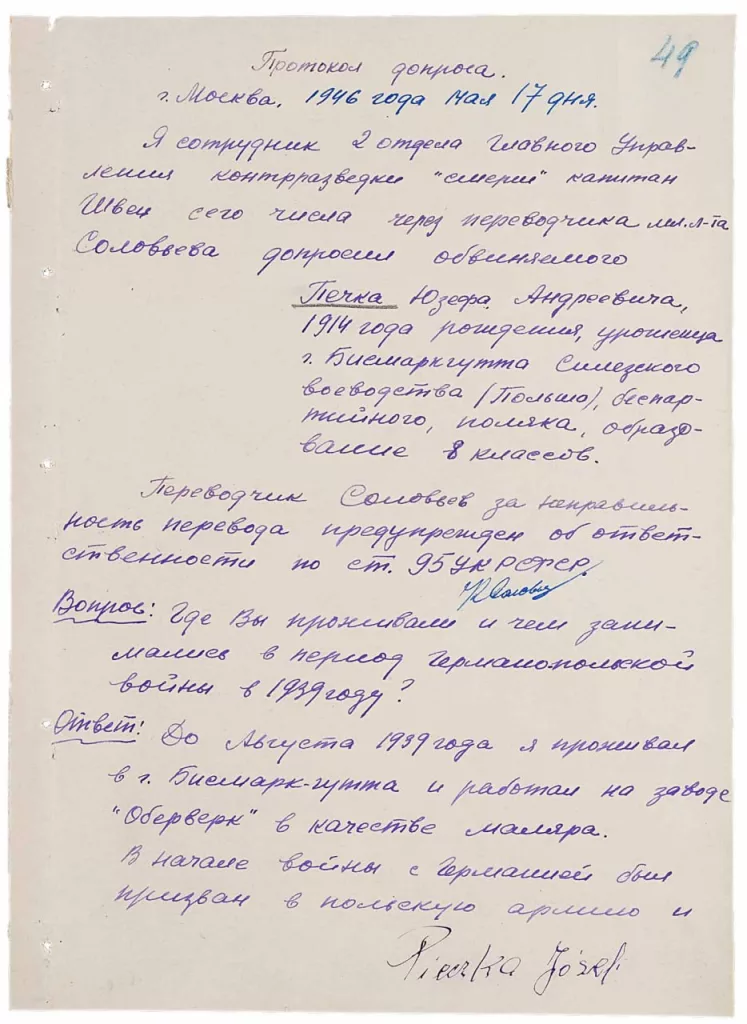 49
Протокол допроса.
г. Москва. 1946 года мая 17 дня.
Я сотрудник 2 отдела Главного Управ-
ления контрразведки "смерш" капитан
Швец сего числа через переводчика мл. л-та
Соловьева допросил обвиняемого
Печка Юзефа Андреевича,
1914 года рождения, уроженца
г. Бисмаркгутта Силезского
воеводства (Польша), беспар-
тийного, поляка, образо-
вание 8 классов.
Переводчик Соловьев за неправиль-
ность перевода предупрежден об ответ-
ственности по ст. 95 УК РСФСР.
Вопрос: Где Вы проживали и чем зани-
мались в период Германо-польской
войны в 1939 году?
Ответ: До Августа 1939 года я проживал
в г. Бисмарк-гутта и работал на заводе
"Оберверк" в качестве маляра.
В начале войны с Германией был
призван в польскую армию и
Pieczka Józef